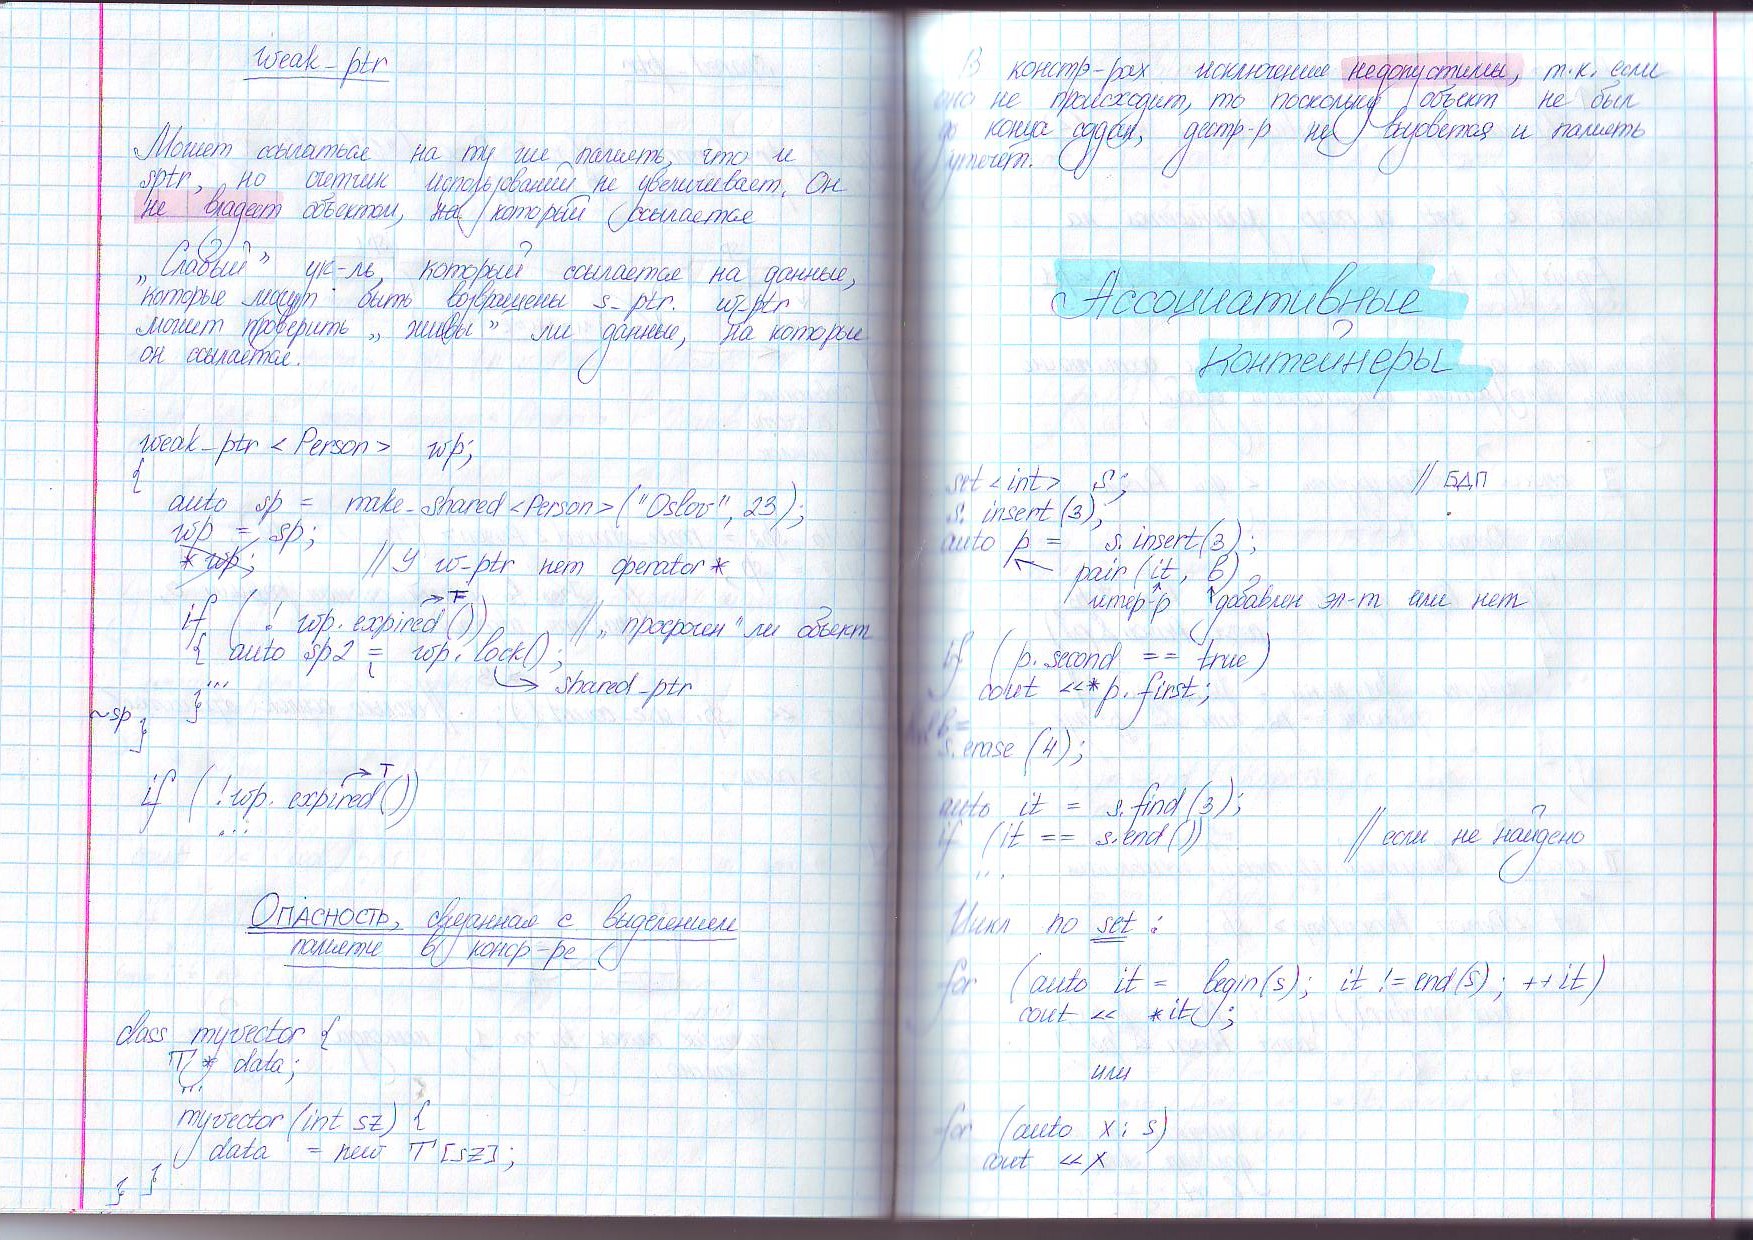 weak-ptr
Может ссылаться на ту же память, что и
sptr, но счетчик использований не увеличивает. Он
не владеет объектом, на который ссылается
„Слабый” ук-ль, который ссылается на данные,
которые могут быть возвращены s-ptr. w-ptr
может проверить „живы” ли данные, на которые
он ссылается.
weak-ptr <Person> wp;
{
auto sp = make-shared <Person> ("Oslov", 23);
wp = sp;
*wp; // У w-ptr нет operator*
if ( ! wp. expired()) → F // „просрочен” ли объект
{ auto sp2 = wp. lock();
→ shared-ptr
...
}
~sp }
if ( !wp. expired()) → T
...
ОПАСНОСТЬ, связанная с выделением
памяти в констр-ре
class myvector {
T* data;
...
myvector (int sz) {
data = new T[sz];
} }
В констр-рах исключения недопустимы, т.к. если
оно не происходит, то поскольку объект не был
до конца создан, дестр-р не вызовется и память
утечет.
Ассоциативные
контейнеры
set <int> s; // БДП
s. insert (3);
auto p = s. insert(3);
pair (it, b)
итер-р добавлен эл-т или нет
if (p.second == true)
cout <<*p. first;
s. erase (4);
auto it = s.find (3);
if (it == s.end()) // если не найдено
...
Цикл по set :
for (auto it = begin(s); it != end(s); ++it)
cout << *it;
или
for (auto x: s)
cout << x